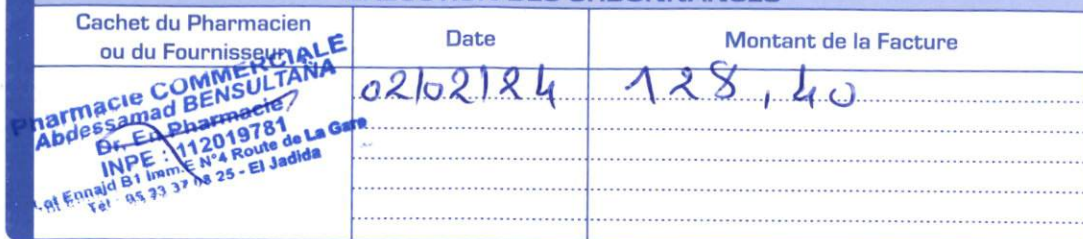 EXECUTION DES ORDONNANCES
Cachet du Pharmacien
ou du Fournisseur
Date
Montant de la Facture
Pharmacie COMMERCIALE
Abdessamad BENSULTANA
Dr. En Pharmacie
INPE : 112019781
Lot Ennajd B1 Imm.E N°4 Route de La Gare
Tél : 05 23 37 08 25 - El Jadida
02/02/24
128,40